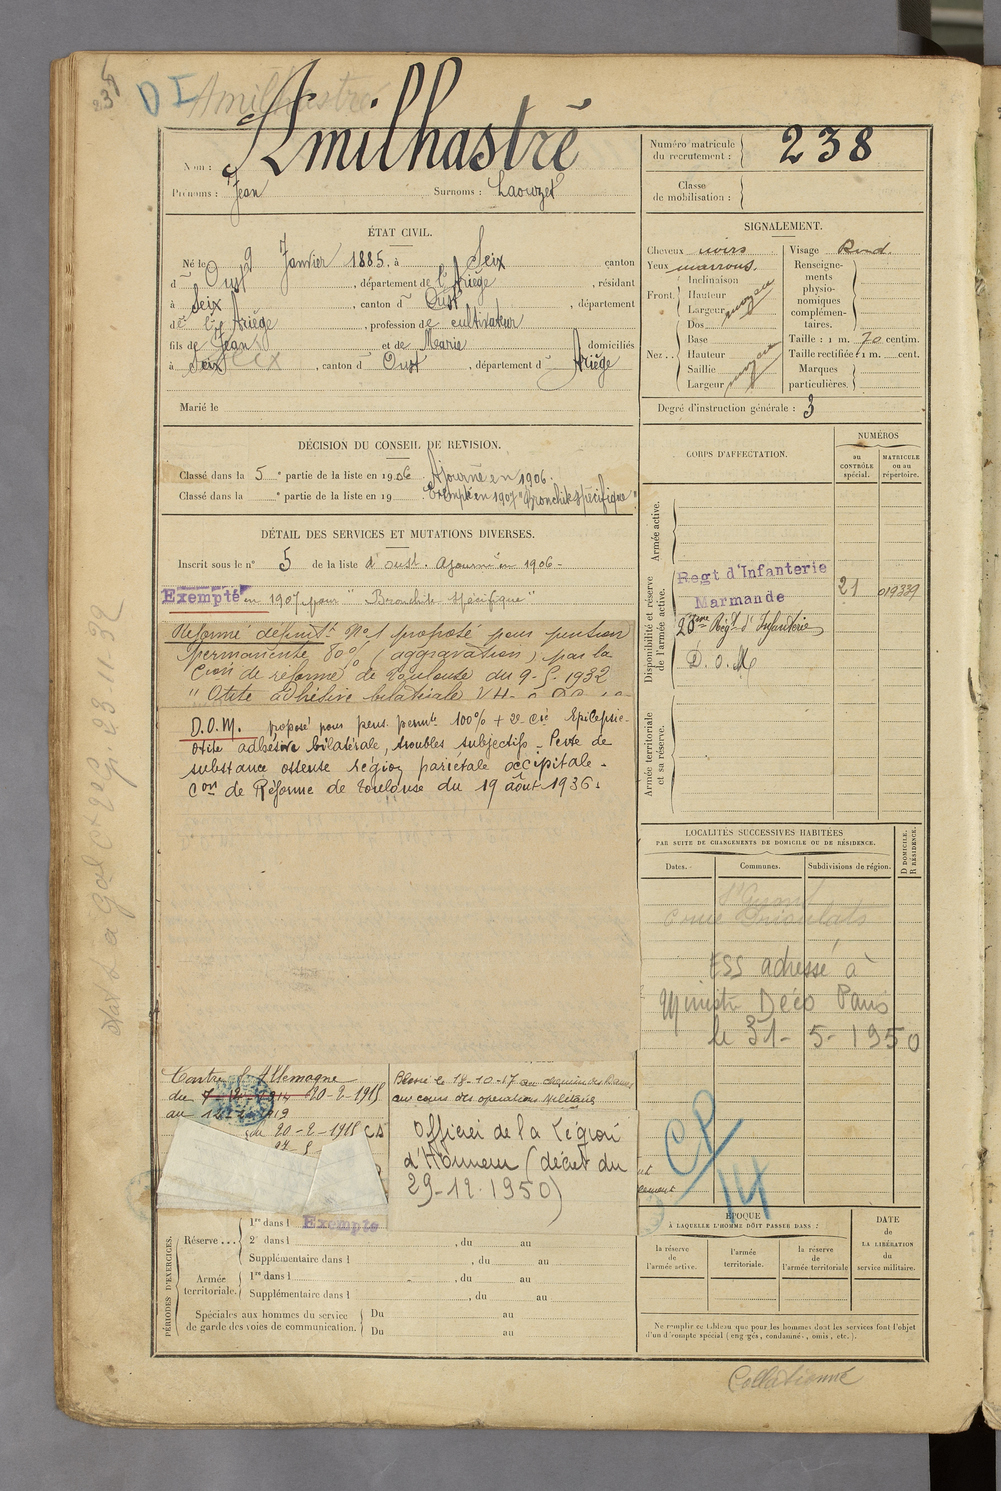 238
D I Amilhastre
Nom : Amilhastre
Prénoms : Jean Surnoms : Laouzet
Numéro matricule du recrutement : 238
Classe de mobilisation :
ÉTAT CIVIL.
Né le 9 Janvier 1885, à Seix canton
d' Oust, département de l'Ariège, résidant
à Seix, canton d' Oust, département
de l'Ariège, profession de cultivateur
fils de Jean et de Marie domiciliés
à Seix, canton d' Oust, département d' Ariège
Marié le
SIGNALEMENT.
Cheveux noirs
Yeux marrons.
Front Inclinaison
Hauteur
Largeur moyen
Nez Dos
Base
Hauteur
Saillie
Largeur moyen
Visage Rond
Renseignements physionomiques complémentaires.
Taille : 1 m. 70 centim.
Taille rectifiée : 1 m. cent.
Marques particulières.
Degré d'instruction générale : 3
DÉCISION DU CONSEIL DE REVISION.
Classé dans la 5 e partie de la liste en 1906 Ajourné en 1906.
Classé dans la e partie de la liste en 19 Exempté en 1907 "Bronchite spécifique"
DÉTAIL DES SERVICES ET MUTATIONS DIVERSES.
Inscrit sous le n° 5 de la liste d'oust. Ajourné en 1906 -
Exempté en 1907 pour "Bronchite spécifique"
Réformé définitt. N°1 proposé pour pension
permanente 80% (aggravation) par la
Cion de réforme de Toulouse du 9-5-1932
"Otite adhésive bilatérale
D.O.M. proposé pour pens. permte 100% + Epilepsie -
otite adhésive bilatérale, troubles subjectifs - Perte de
substance osseuse région pariétale occipitale -
Con de Réforme de Toulouse du 19 août 1936.
CORPS D'AFFECTATION.
NUMÉROS
au CONTRÔLE spécial.
MATRICULE ou au répertoire.
Armée active.
Disponibilité et réserve de l'armée active.
Regt d'Infanterie
Marmande
21 019339
Régt d'Infanterie
D. O. M.
Armée territoriale et sa réserve.
LOCALITÉS SUCCESSIVES HABITÉES
PAR SUITE DE CHANGEMENTS DE DOMICILE OU DE RÉSIDENCE.
Dates.
Communes.
Subdivisions de région.
D DOMICILE.
R RÉSIDENCE.
ESS adressé à
Paris
le 31-5-1950
CP
14
Contre l'Allemagne
du 20-2-1918
au
du 20-2-1918
Blessé le 18-10-17 au chemin des Dames
au cours des opérations militaires
Officier de la Légion
d'Honneur (décret du
29-12-1950)
PÉRIODES D'EXERCICES.
Réserve ...
1re dans l Exempté
2e dans l , du au
Supplémentaire dans l , du au
Armée territoriale.
1re dans l , du au
Supplémentaire dans l , du au
Spéciales aux hommes du service de garde des voies de communication.
Du au
Du au
ÉPOQUE
À LAQUELLE L'HOMME DOIT PASSER DANS :
la réserve de l'armée active.
l'armée territoriale.
la réserve de l'armée territoriale
DATE de LA LIBÉRATION du service militaire.
Ne remplir ce tableau que pour les hommes dont les services font l'objet
d'un décompte spécial (engagés, condamnés, omis, etc.).
Collationné